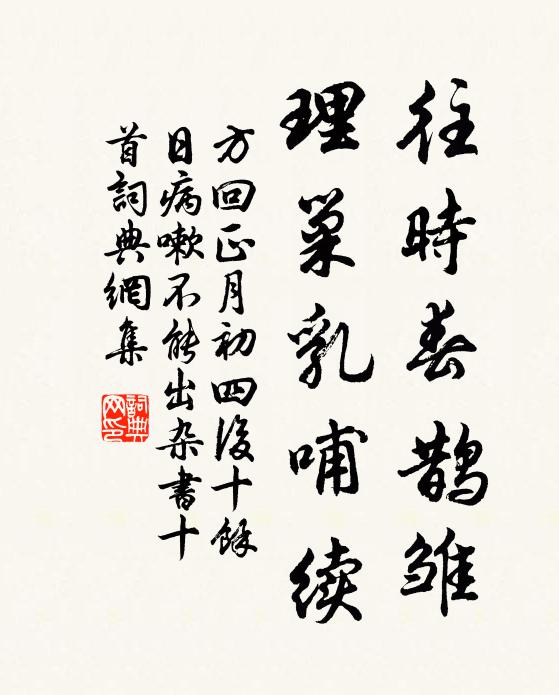 往時春鵲雏
理巢乳哺续
方回正月初四後十餘
日病嗽不能出杂書十
首詞典網集
詞典
网印